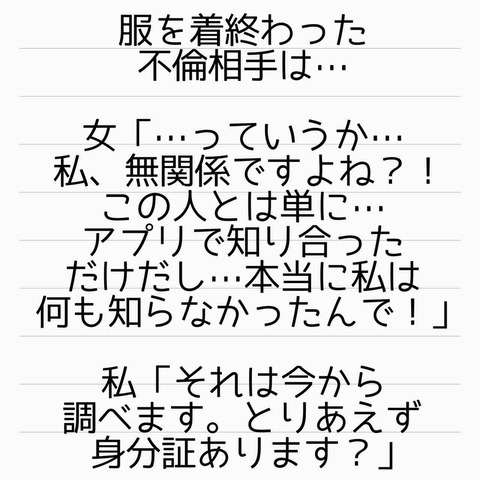 服を着終わった
不倫相手は…
女「…っていうか…
私、無関係ですよね？！
この人とは単に…
アプリで知り合った
だけだし…本当に私は
何も知らなかったんで！」
私「それは今から
調べます。とりあえず
身分証あります？」